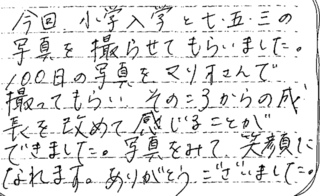 今回 小学入学と七・五・三の
写真を撮らせてもらいました。
100日の写真をマリオさんで
撮ってもらい そのころからの成
長を改めて感じることが
できました。写真をみて 笑顔に
なれます。ありがとうございました。